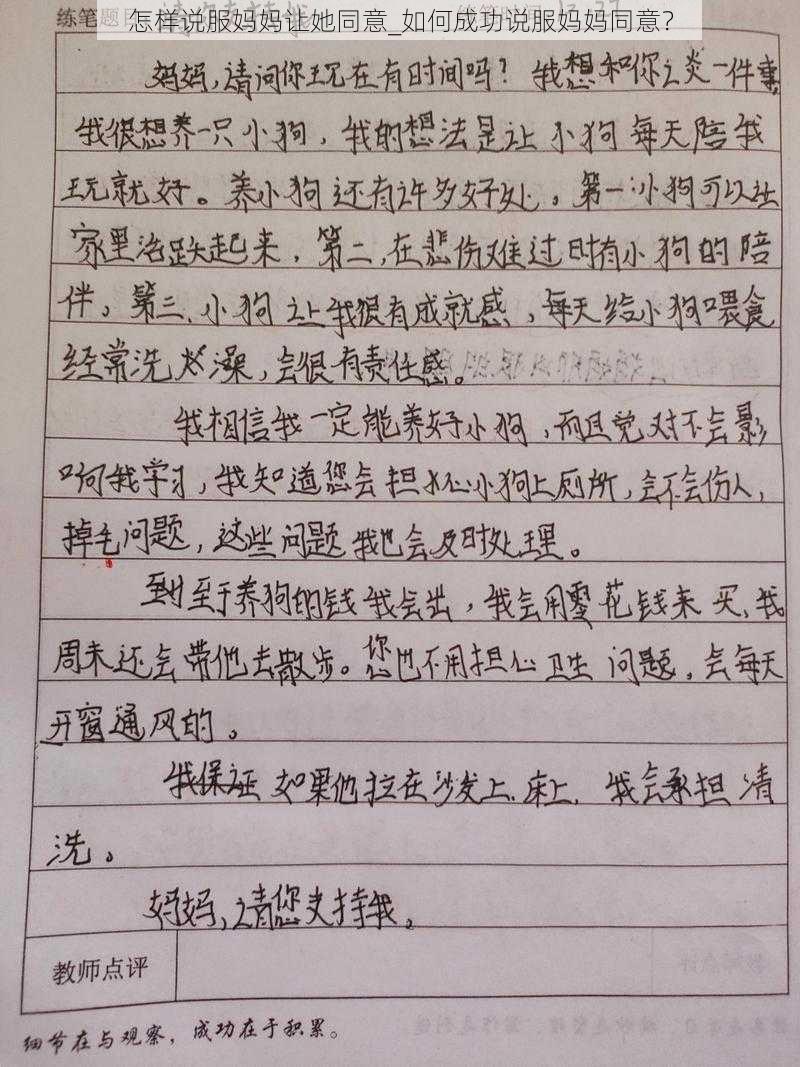 怎样说服妈妈让她同意_如何成功说服妈妈同意？
练笔题目
妈妈，请问你现在有时间吗？我想和你谈一件事，
我很想养一只小狗，我的想法是让小狗每天陪我
玩就好。养小狗还有许多好处，第一：小狗可以让
家里活跃起来，第二，在悲伤难过时有小狗的陪
伴。第三，小狗让我很有成就感，每天给小狗喂食
经常洗澡，会很有责任感。
我相信我一定能养好小狗，而且绝对不会影
响我学习，我知道您会担心小狗上厕所，会不会伤人，
掉毛问题，这些问题我也会及时处理。
至于养狗的钱我会出，我会用零花钱来买，我
周末还会带他去散步。您也不用担心卫生问题，会每天
开窗通风的。
我保证如果他拉在沙发上，床上，我会承担清
洗。
妈妈，请您支持我。
教师点评
细节在与观察，成功在于积累。